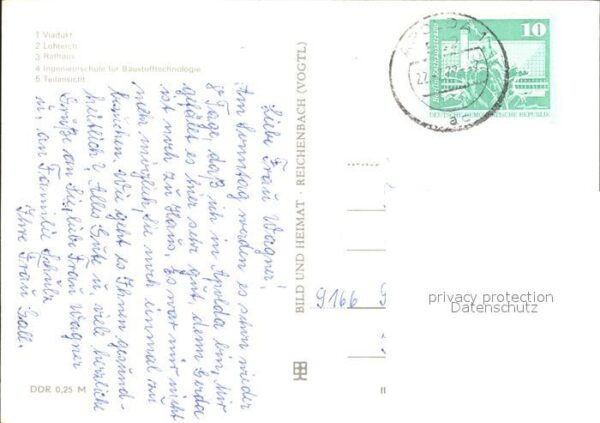 1 Viadukt
2 Lohteich
3 Rathaus
4 Ingenieurschule für Baustofftechnologie
5 Teilansicht
Liebe Frau Wagner!
Am Sonntag werden es schon wieder
8 Tage, daß ich in Apolda bin, Mir
gefällt es hier sehr gut, denn Gerda
ist noch zu Haus. Es war mir nicht
mehr möglich, Sie noch einmal zu
besuchen. Wie geht es Ihnen gesund-
heitlich? Alles Gute u. viele herzliche
Grüße an Sie, liebe Frau Wagner
u. an Familie Schulz
Ihre Frau Gall.
DDR 0,25 M
BILD UND HEIMAT · REICHENBACH (VOGTL)
APOLDA 1
10
DEUTSCHE DEMOKRATISCHE REPUBLIK
9166
privacy protection
Datenschutz